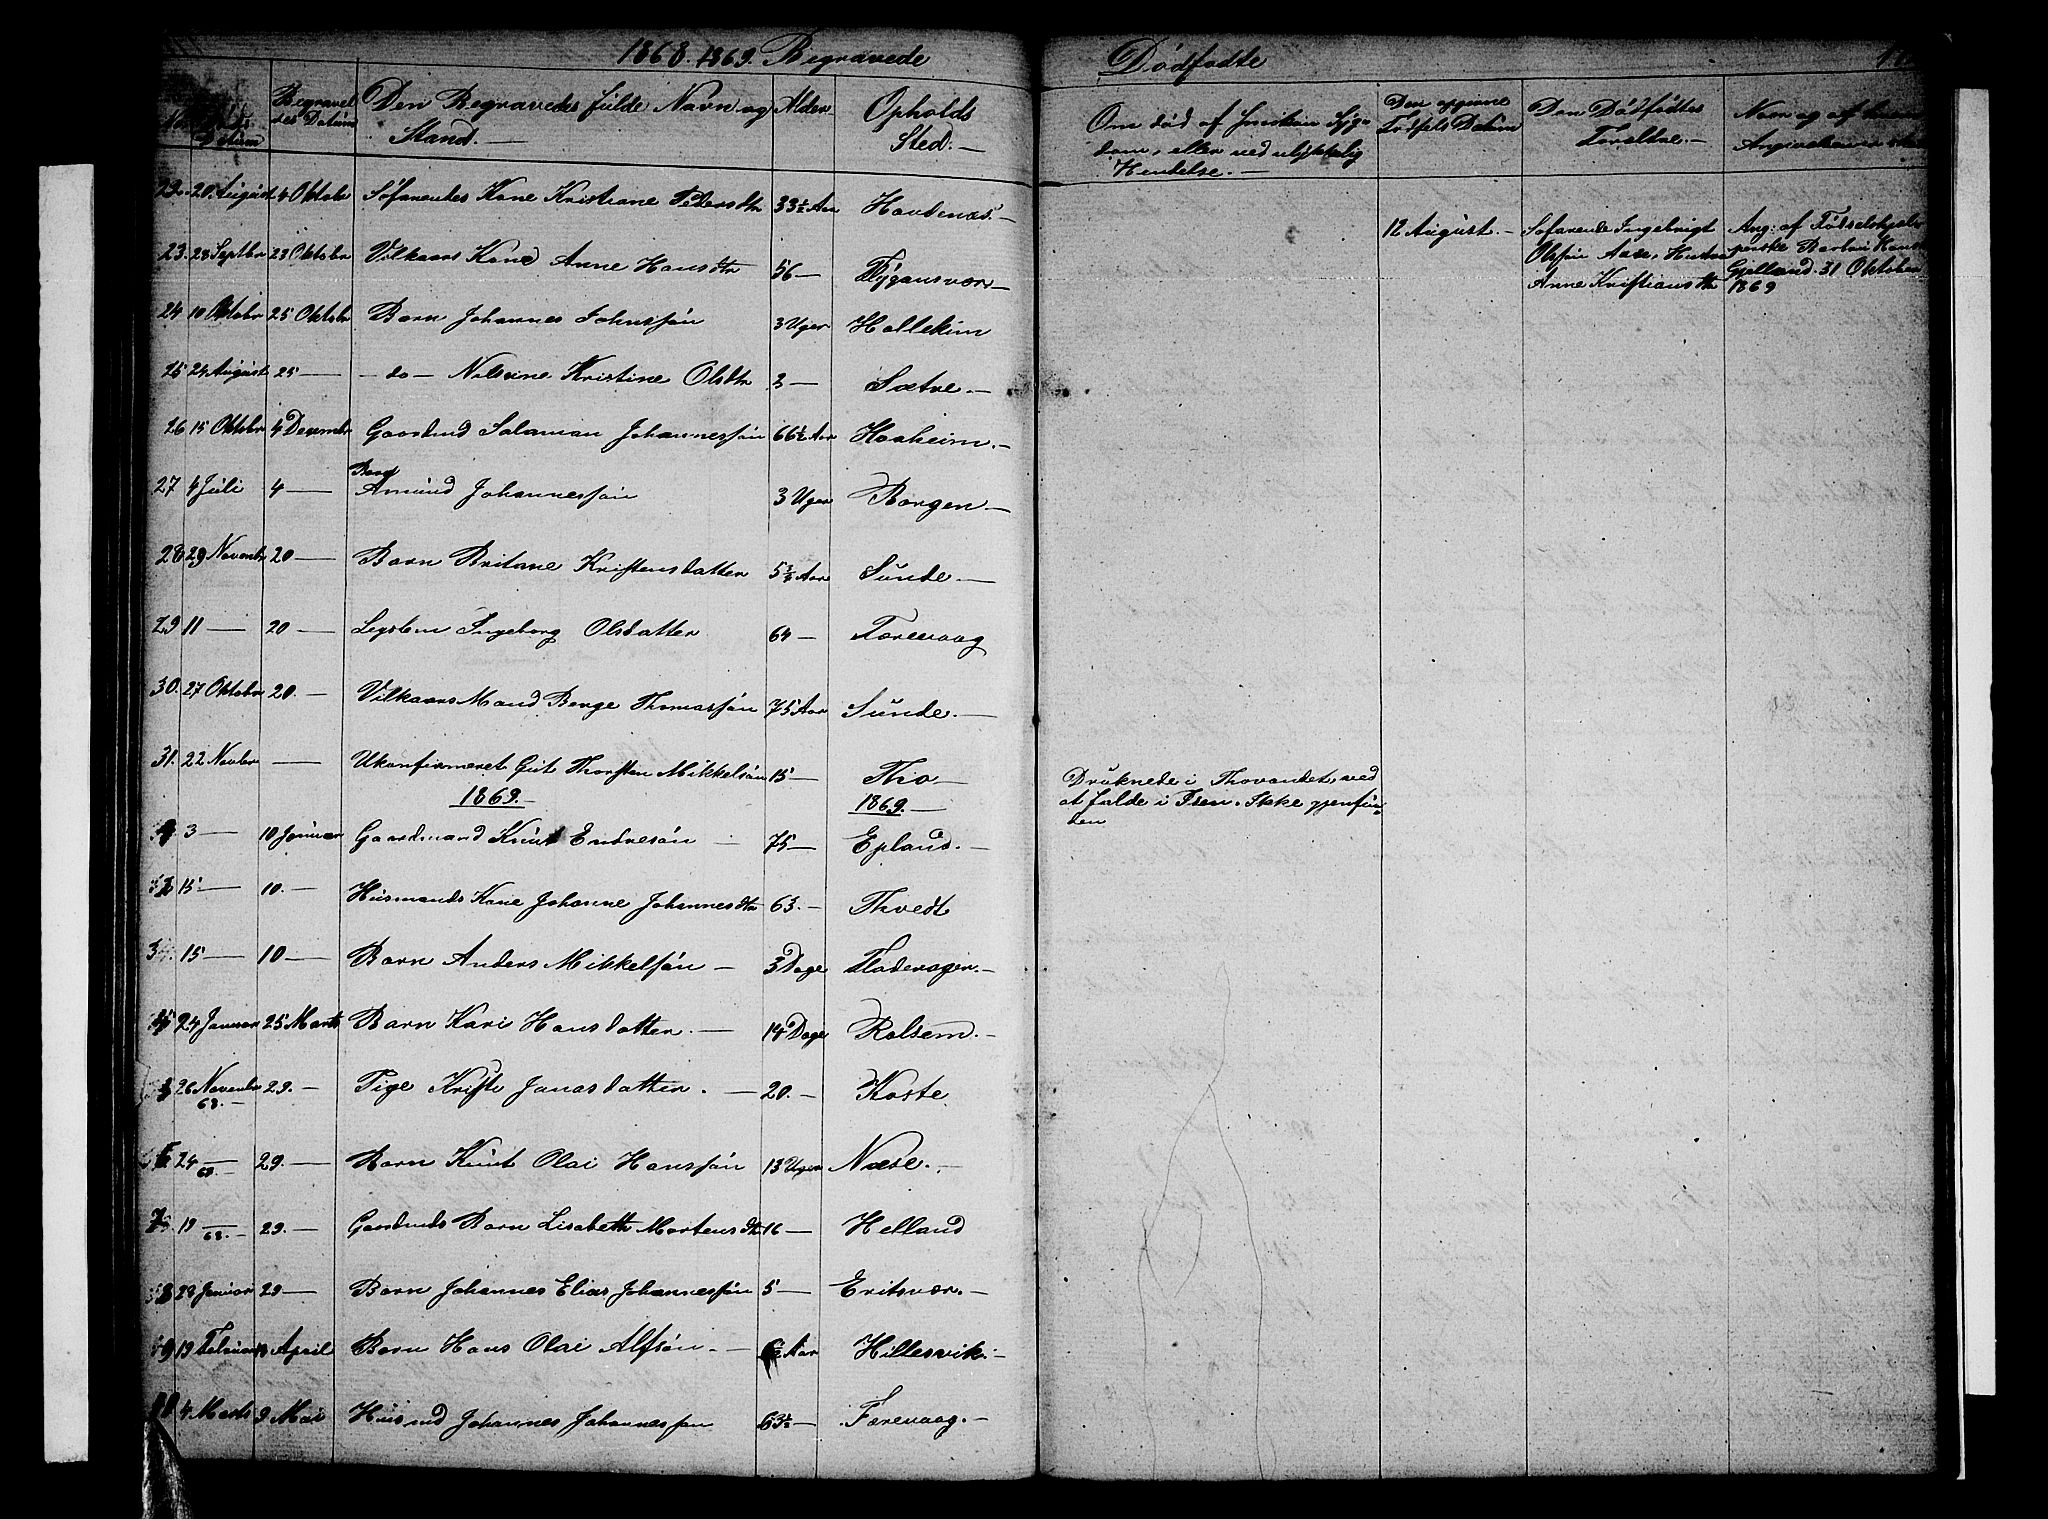 1868. 1869. Begravede
Dødfødte
Datum
Begravel
des Datum
Den Begravedes fulde Navn og
Stand. —
Alder
Opholds
Sted. —
Om død af Smitsom Syg-
dom, eller ved ulykkelig
Hendelse. —
Den opgivne
Fødsels Datum
Den Dødfødtes
Forældre. —
Navn og af hvem
20 August 4 Oktobr Søfarendes Kone Kristiane Pedersdtr 33½ Aar Hovdenæs. —
12 August. — Søfarende Ingebrigt
Olsøn Aase, Hustru
Anne Kristiansdtr
Ang: af Fødselshjel-
perske Barbru
Gjelland. 31 Oktober
1869
23. 28 Septbr 23 Oktobr Vilkaars Kone Anne Hansdtr 56 —
24 10 Oktobr 25 Oktobr Barn Johannes Johnssøn 3 Uger Hallekim
25 24 August 25 — — do — Nilsine Kristine Olsdtr 2 — Sætre —
26 15 Oktobr 4 Decembr Gaardmd Salamon Johannessøn 66½ Aar Haaheim. —
27 4 Juli 4 — Barn Amund Johannessøn 3 Uger Borgen —
28 29 Novembr 20 — Barn Britane Kristensdatter 5¾ Aar Sunde —
29 11 — 20 — Legslem Ingeborg Olsdatter 64 — Færevaag
30. 27 Oktobr 20. — Vilkaars Mand Børge Thomassøn 75 Aar Sunde. —
31. 22 Novbr — Ukonfirmeret Gut Thorsten Mikkelsøn 15 — Tho —
Druknede i Thovandet ved
at falde i Isen. Ikke gjenfun-
den
1869. —
1869. —
3 — 10 Januar Gaardmand Knut Endresøn — 75 — Epland. —
15 — 10. — Husmands Kone Johanne Johannesdtr 63. — Thvedt
15 — 10 — Barn Anders Mikkelsøn — 3 Dage
24 Januar 25 Marts Barn Kari Hansdatter. — 14 Dage Rolsem. —
26 Novembr 29. — Pige Kristi Jonasdatter. — 20. — Koste
68. —
24 — 29. — Barn Knut Olai Hanssøn 13 Uger Næse. —
68. —
19 — 29. — Gaardmds Barn Lisabeth Mortensdtr 16 — Helland
68. —
28 Januar 29 — Barn Johannes Elias Johannessøn 5 — Eritsvær. —
19 Februar April Barn Hans Olai Alfsøn. — ½ Aar Hillesvik. —
4 Marts 9 Mai Husmd Johannes Johannessøn 63½ — Færevaag. —